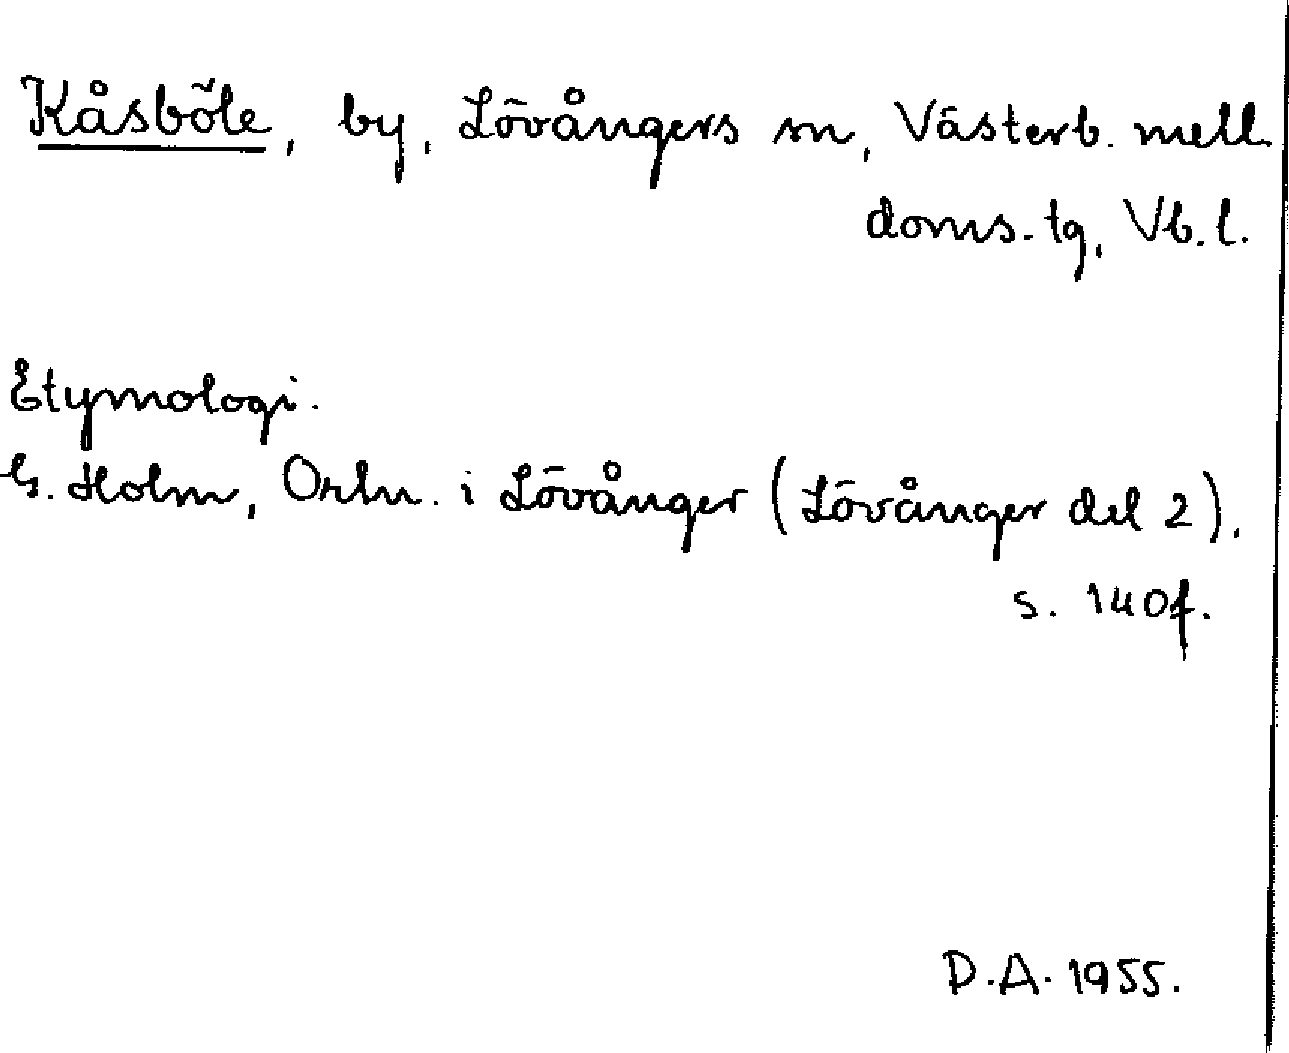 Kåsböle, by, Lövångers sn, Västerb. mell.
doms. tg, Vb. l.
Etymologi.
G. Holm, Ortn. i Lövånger (Lövånger del 2),
s. 140f.
D.A. 1955.